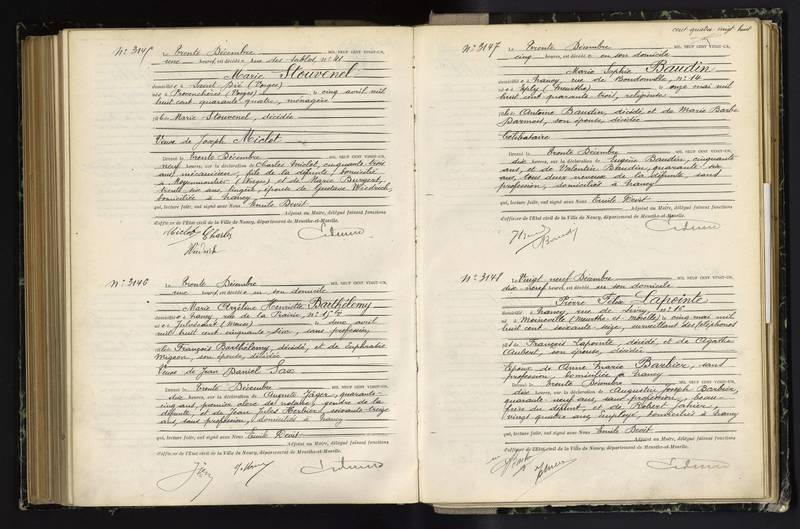 N° 3145
Le Trente Décembre MIL NEUF CENT VINGT-UN,
une heure, est décédée rue des Sables N° 41
Marie Stouvenel
domiciliée à (Vosges)
née à Provenchères (Vosges) le cinq avril mil
huit cent quarante quatre, ménagère
de Marie Stouvenel, décédée
Veuve de Joseph Miclot
Devant le Trente Décembre MIL NEUF CENT VINGT-UN,
neuf heures, sur la déclaration de Charles Miclot, cinquante trois
ans, mécanicien, fils de la défunte, domicilié
à Moyenmoutier (Vosges), et de Marie
trente six ans, lingère, épouse de Gustave
domiciliée à Nancy
qui, lecture faite, ont signé avec Nous Emile Devit
Adjoint au Maire, délégué faisant fonctions
d'officier de l'Etat civil de la Ville de Nancy, département de Meurthe-et-Moselle.
Miclot Charles
N° 3146
Le Trente Décembre MIL NEUF CENT VINGT-UN,
une heure, est décédée en son domicile
Marie Henriette Barthélemy
domiciliée à Nancy, rue de la Prairie, N°
née à (Meuse) le avril
mil huit cent cinquante six, sans profession
de François Barthélemy, décédé, et de Euphrasie
son épouse, décédée
Veuve de Jean Daniel
Devant le Trente Décembre MIL NEUF CENT VINGT-UN,
dix heures, sur la déclaration de Auguste Jäger, quarante-
cinq ans, premier clerc de notaire, gendre de la
défunte, et de Jean Jules soixante treize
ans, sans profession, domiciliés à Nancy
qui, lecture faite, ont signé avec Nous Emile Devit
Adjoint au Maire, délégué faisant fonctions
d'officier de l'Etat civil de la Ville de Nancy, département de Meurthe-et-Moselle.
cent quatre-vingt huit
N° 3147
Le Trente Décembre MIL NEUF CENT VINGT-UN,
cinq heures, est décédée en son domicile
Marie Sophie Baudin
domiciliée à Nancy, rue de Boudonville N° 14
née à Eply (Meurthe) le onze mai mil
huit cent quarante trois, religieuse
de Antoine Baudin, décédé et de Marie Barbe
son épouse, décédée
Célibataire
Devant le Trente Décembre MIL NEUF CENT VINGT-UN,
dix heures, sur la déclaration de Eugène Baudin, cinquante
ans, et de Valentin Baudin, quarante six
ans, tous deux neveux de la défunte, sans
profession, domiciliés à Nancy
qui, lecture faite, ont signé avec Nous Emile Devit
Adjoint au Maire, délégué faisant fonctions
d'officier de l'Etat civil de la Ville de Nancy, département de Meurthe-et-Moselle.
N° 3148
Le Vingt neuf Décembre MIL NEUF CENT VINGT-UN,
dix neuf heures, est décédé en son domicile
Pierre Félix Lapointe
domicilié à Nancy, rue de N° 16
né à Moineville (Meurthe et Moselle) le cinq mai mil
huit cent soixante-seize, surveillant des téléphones
de François Lapointe, décédé, et de Agathe
Aubert, son épouse, décédée
Epoux de Anne Marie Barbier, sans
profession, domiciliée à Nancy
Devant le Trente Décembre MIL NEUF CENT VINGT-UN,
dix heures, sur la déclaration de Augustin Joseph Barbier,
quarante neuf ans, sans profession, beau
frère du défunt, et de Robert
vingt quatre ans, employé, domiciliés à Nancy
qui, lecture faite, ont signé avec Nous Emile Devit
Adjoint au Maire, délégué faisant fonctions
d'officier de l'Etat civil de la Ville de Nancy, département de Meurthe-et-Moselle.